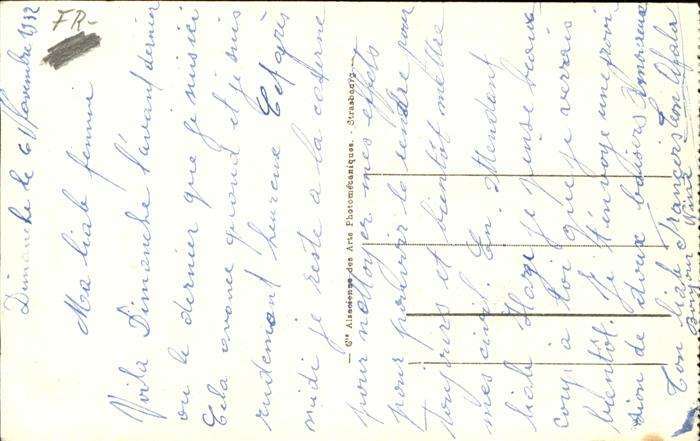 FR-
Dimanche le 6 Novembre 1932
Ma liab femme
Voila Dimanche l'avant dernier
ou le dernier que je suis ici
Cela avance quand et je suis
heureux Cet après
midi je reste a la caserne
pour nettoyer mes effets
pour pouvoir les rendre pour
toujours et bientôt mettre
mes civils. En attendant
liab je pense beau
coup à toi que je verrais
bientôt. Je t'envoye une provi
sion de doux baisers
Ton liab
Cie Alsacienne des Arts Photomécaniques. - Strasbourg